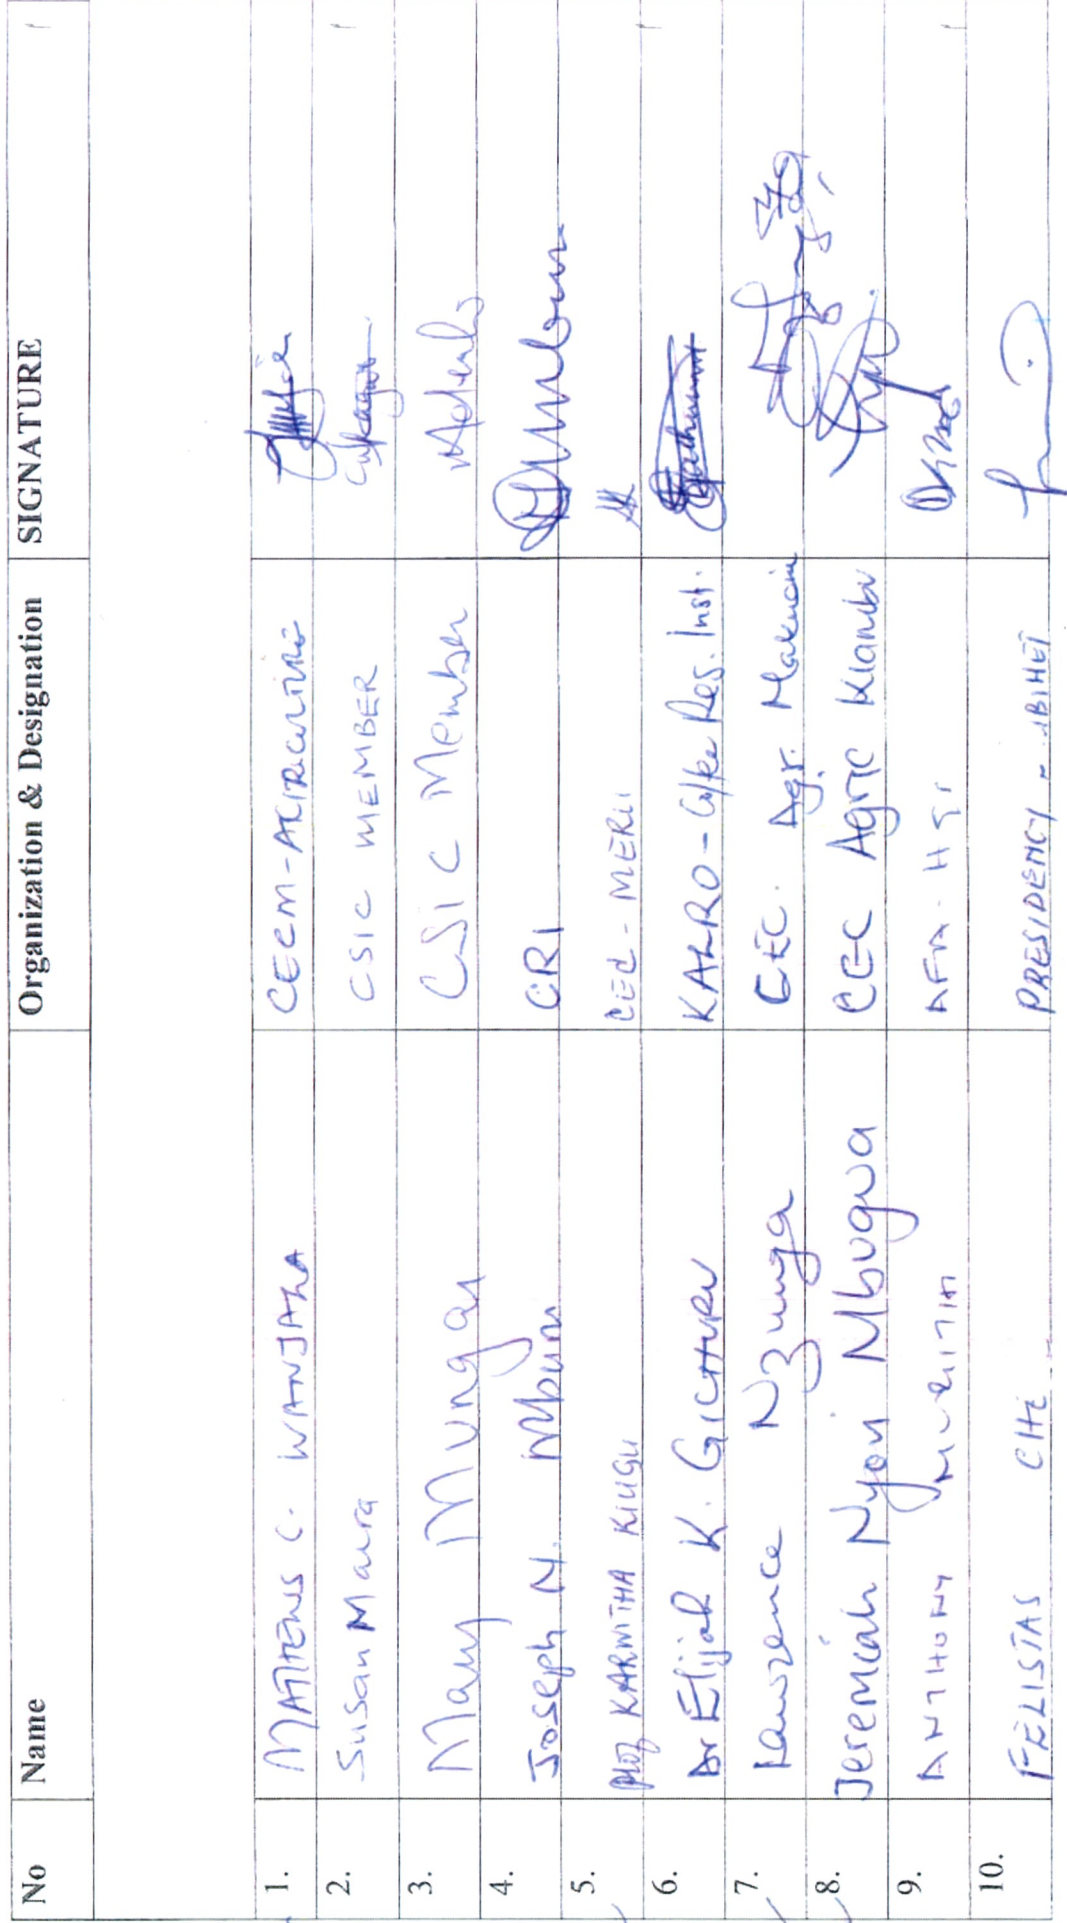 No Name Organization & Designation SIGNATURE
1. MATHEWS C. WANJALA CECM-AGRICULTURE
2. Susan Maura CSIC MEMBER
3. Mary Mungai CSIC Member
4. Joseph N. Mburu CRI
5. Prof KARWITHA KIUGU CEC - MERU
6. Dr Elijah K. GICHURU KALRO - Coffee Res. Inst.
7. Lawrence Nzunga CEC. Agr. Makueni
8. Jeremiah Njoroge Mbugwa CEC Agric Kiambu
9. ANTHONY MURIITHI AFA -
10. FELISTAS PRESIDENCY -